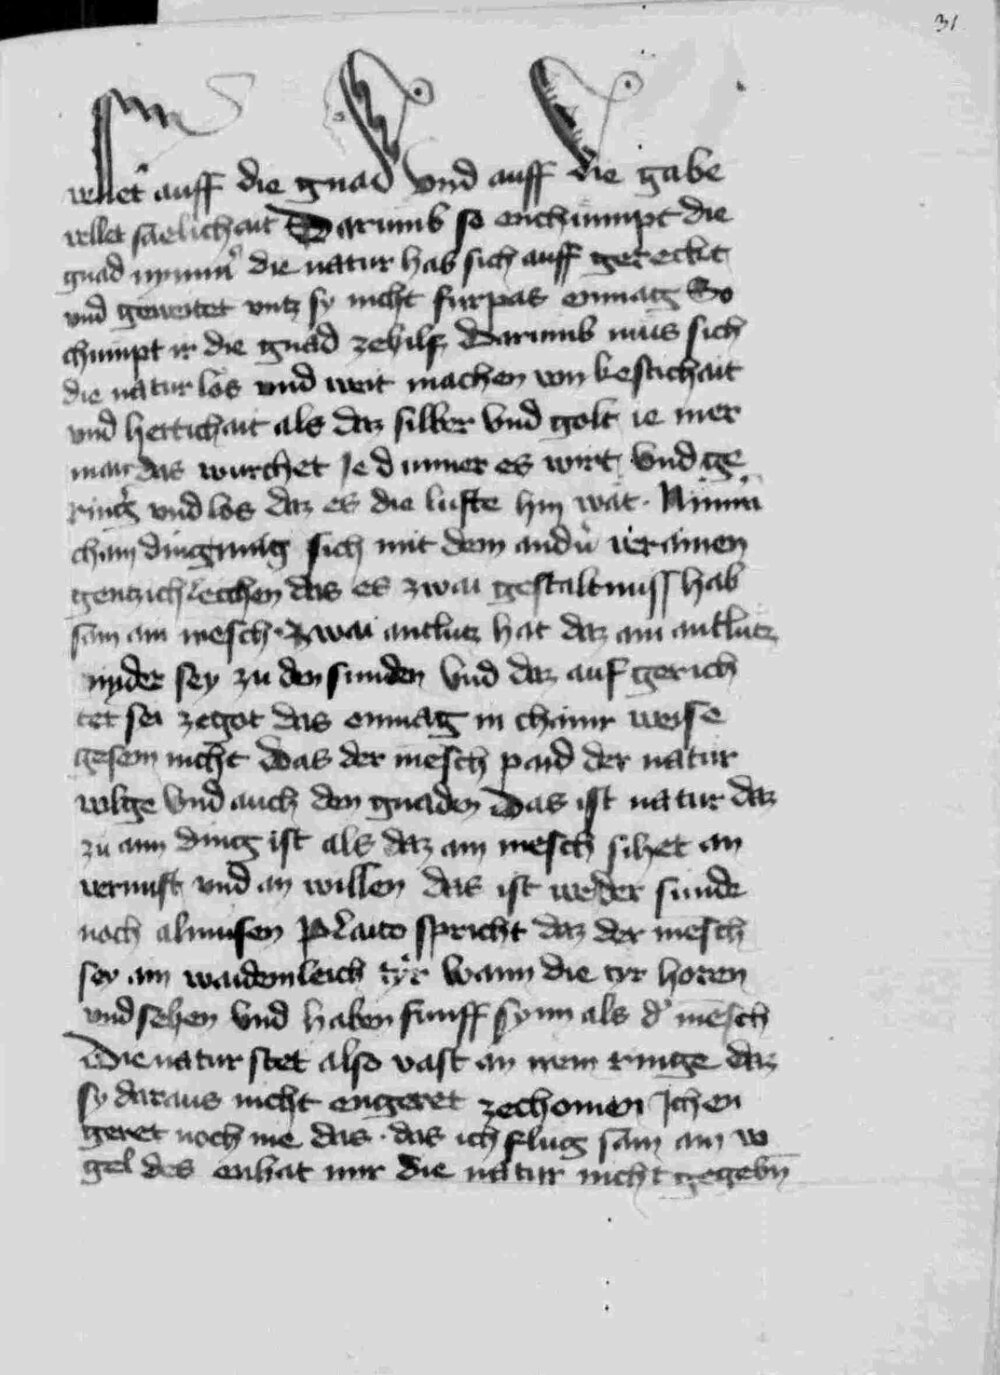 31
vellet auff die gnad vnd auff die gabe
vellet saelichait Darumb so enchumpt die
gnad nymm̄ die natur hab sich auff gereckt
vnd geweitet vntz sy nicht furpas enmag So
chumpt ir die gnad zehilf Darumb mus sich
die natur los vnd weit machen von bestichait
vnd hertichait als daz silber vnd golt ie mer
man das wurchet Je dunner es wirt vnd ge
ring̉ vnd los daz es die lufte hin wat. Nimm̉
chain ding mug sich mit dem and̉n verainen
gentzichleichen das es zwai gestaltnuss hab
sam ain mesch. zwai antlutz hat daz ain antlutz
nyder sey zu den sunden vnd daz auf gerich
tet sei zegot das enmag in chainr weise
gesein nicht Das der mēsch paid der natur
volge vnd auch den gnaden Das ist natur daz
zu aim ding ist als daz ain mesch sihet an
vernuft vnd an willen das ist weder sunde
noch almusen Plaito spricht daz der mēsch
sey ain waidenleich tyr Wann die tyr horen
vnd sehen vnd haben funff synn als d̉ mēsch
Die natur stet also vast an irem ringe daz
sy daraus nicht engeret zechomen Ich en
geret noch nie das. das ich flug sam ain vo
gel des enhat mir die natur nicht gegebn̄